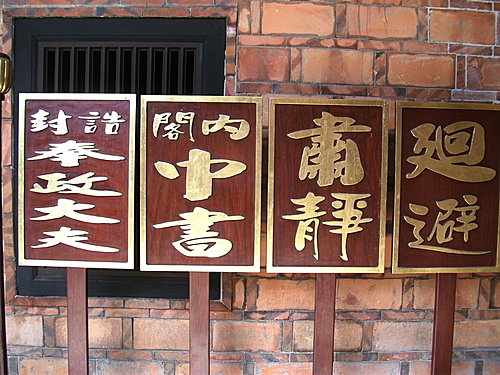 廻避
肅靜
內閣
中書
誥封
奉政大夫